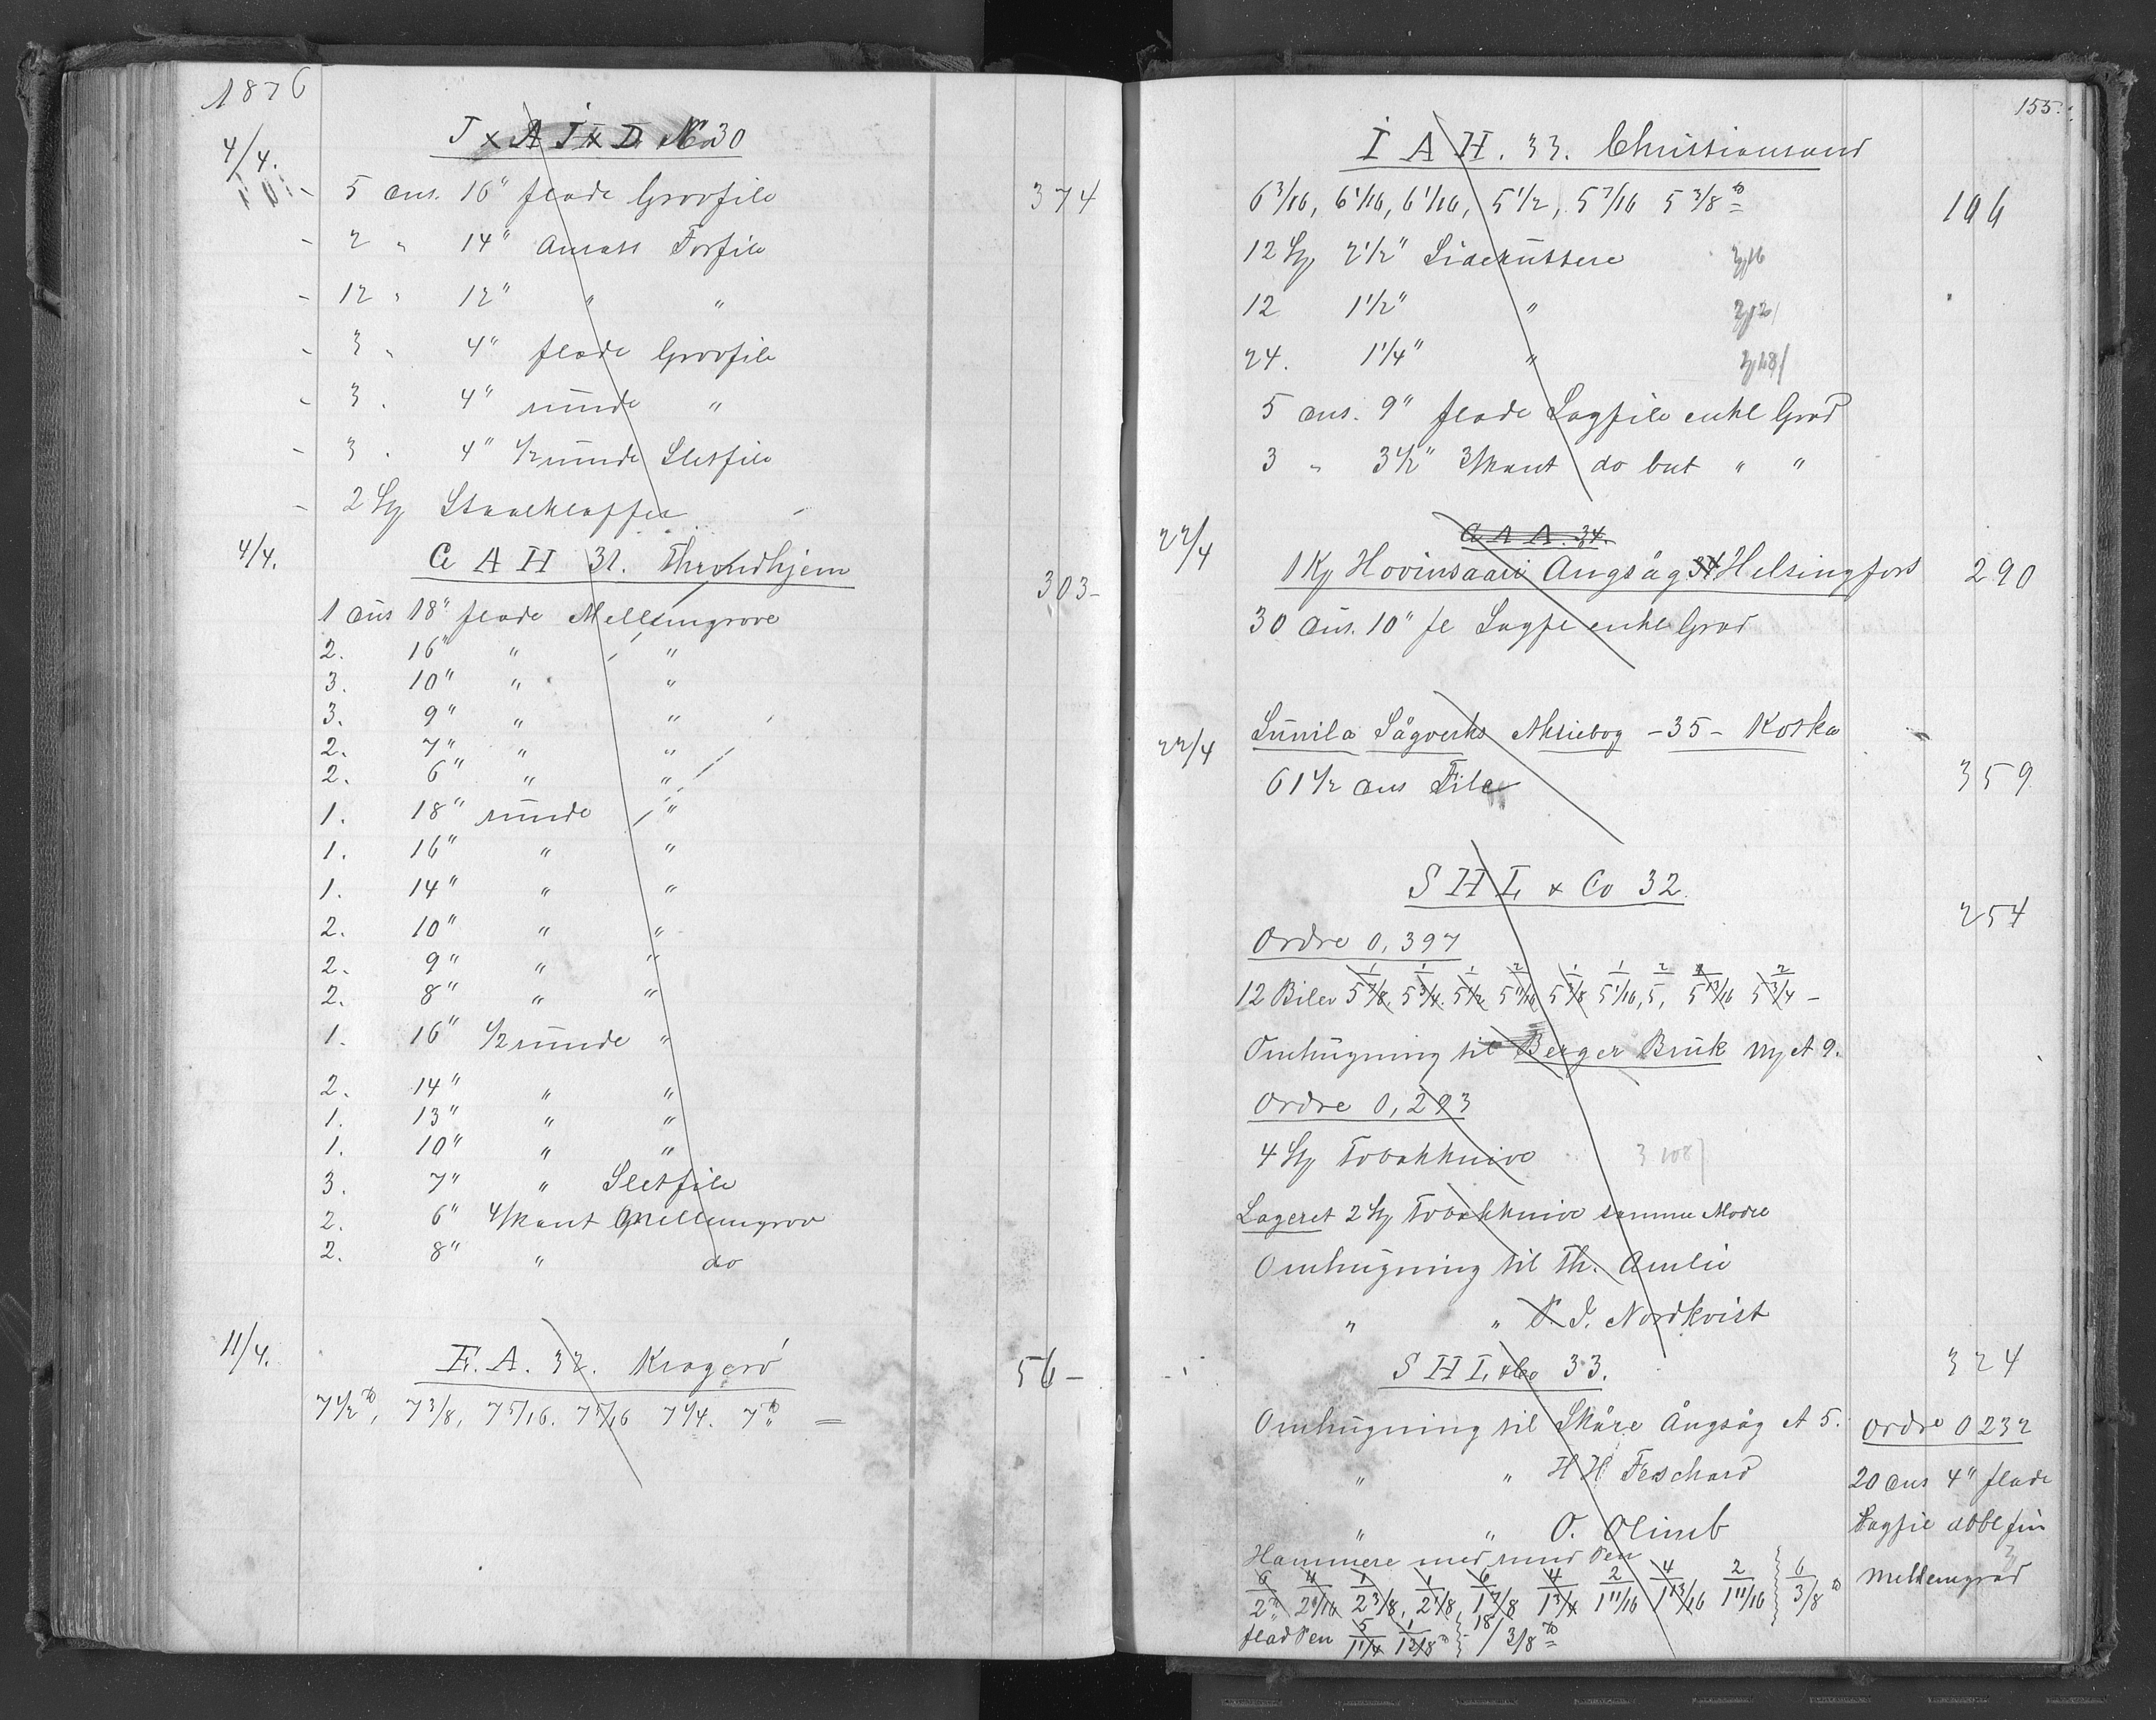 1876
4/4. J x A J x D No 30
5 Dus. 16" flade Grovfile 374
2 " 14" Ansats Forfile
12 " 12" " "
3 " 4" flade Grovfile
3 . 4" runde "
3 . 4" 1/2 runde Sletfile
2 St
4/4. C A H 31. Throndhjem 303-
1 Dus 18" flade Mellemgrove
2. 16" " "
3. 10" " "
3. 9" " "
2. 7" " "
2. 6" " "
1. 18" runde "
1. 16" " "
1. 14" " "
2. 10" " "
2. 9" " "
2. 8" " "
1. 16" 1/2 runde "
2. 14" " "
1. 13" " "
1. 10" " "
3. 7" " Sletfile
2. 6" 4/kant Mellemgrov
2. 8" " do
11/4. E. A. 32. Kragerö 56-
7 1/2 tb, 7 3/8, 7 5/16. 7 5/16 7 1/4. 7 tb =
155.
I A H. 33. Christiansand
6 3/16, 6 1/16, 6 1/16, 5 1/2, 5 7/16 5 3/8 tb 196
12 St 2 1/2"
12 1 1/2" "
24. 1 1/4" "
5 Dus. 9" flade Sagfile enkl Grad
3 " 3 1/2" 3/kant do but " "
22/4 C A A. 34.
1 Kp Hovinsaari Angsåg 34 Helsingfors 290
30 Dus. 10" fl Sagfe enkl Grad
22/4 Sunila Sågverks Aktiebog -35- Kotka
61 1/2 Dus File 359
S H L & Co 32.
254
Ordre 0,397
12 Biler 1/5 7/8, 1/5 3/4. 1/5 1/2 2/5 11/16 1/5 3/8 1/5 1/16, 2/5, 5 13/16 2/5 3/4 -
Omhugning til Berger Bruk A 9.
Ordre 0,293
4 St Tobakknive 3 108
Lageret 2 St Tobakknive samme Model
Omhugning til Th. Amlie
" " P. I. Nordkvist
S H L & Co 33. 324
Omhugning til Skåre Ångsåg A 5.
" " H H Feschard
" " O. Olimb
Ordre 0 232
20 Dus 4" flade
Sagfil dobl fin
Mellemgrad
Hammere med rund Pen
6/2 tb 4/2 9/16 1/2 3/8, 1/2 1/8, 6/1 7/8 4/1 3/4 2/1 11/16 4/1 13/16 2/1 11/16 } 6/3/8 tb
flad Pen 5/1 1/4 1/1 3/8 tb } 18/ 3/8 tb